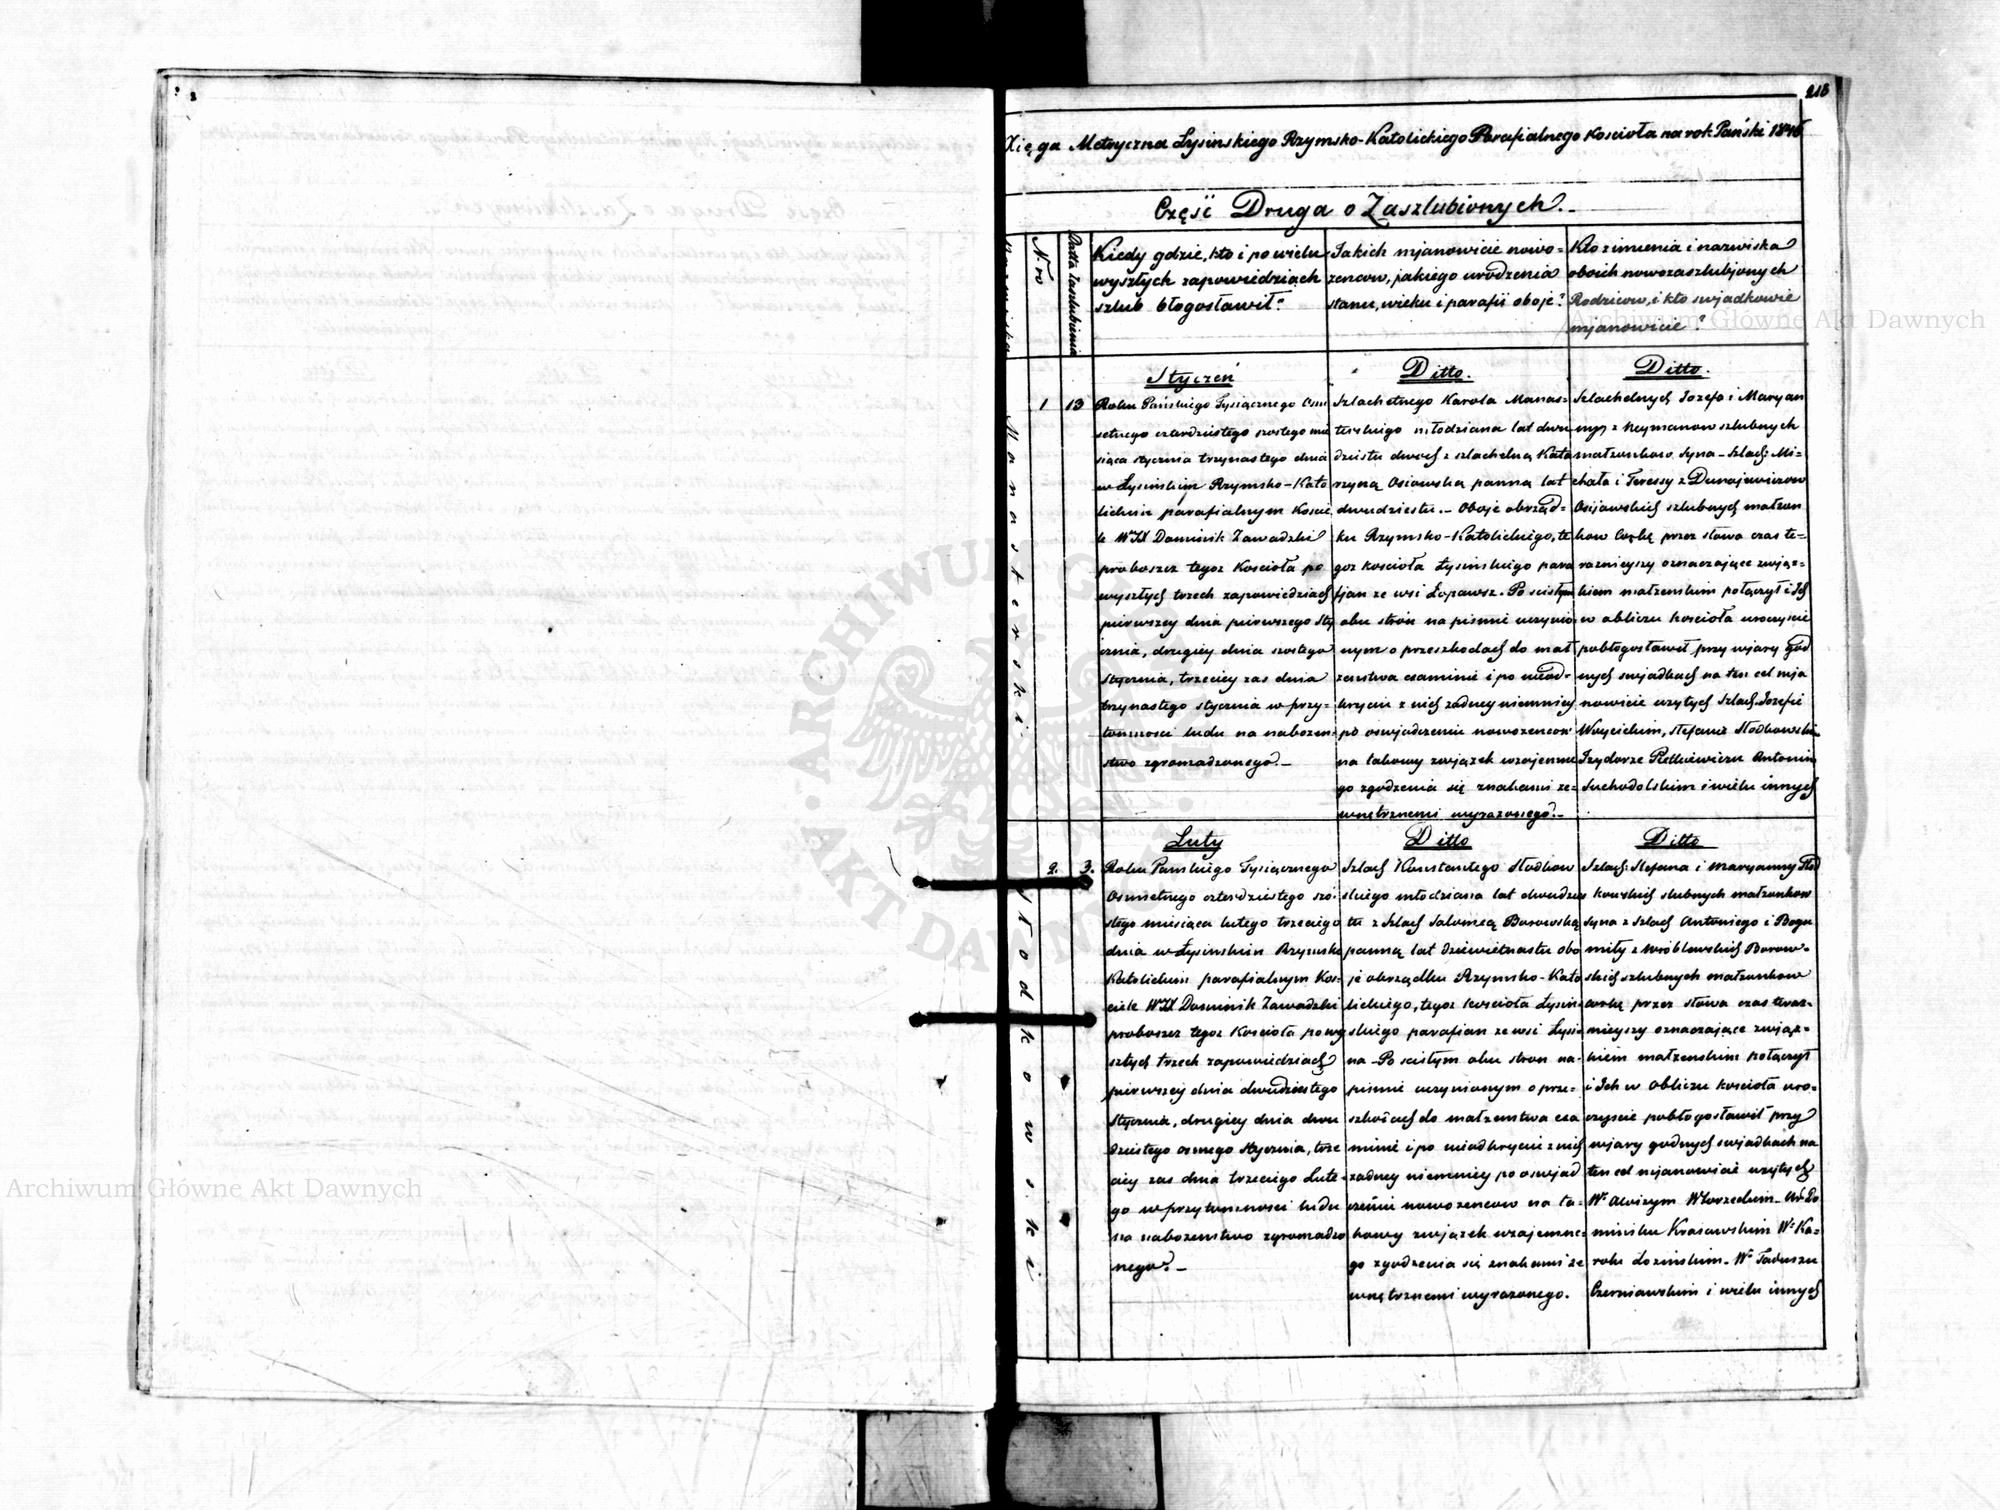 218
Xięga Metryczna Łysinskiego Rzymsko-Katolickiego Parafialnego Kościoła na rok Pański 1846
Część Druga o Zaszlubionych.
Nro
Datta Zaszlubienia
Kiedy gdzie, kto i po wielu
wyszłych zapowiedziach
szlub błogosławił?
Jakich mjanowicie nowo-
zencow, jakiego urodzenia
stanu, wieku i parafii oboje?
Kto z imienia i nazwiska
oboich nowozaszlubjonych
Rodzicow, i kto swjadkowie
mjanowicie?
Manasterski
1 13
Styczeń
Roku Pańskiego Tysiącznego Osm
setnego czterdziestego szostego mie
siąca stycznia trzynastego dnia
w Łysińskim Rzymsko-Kato
lickim parafialnym Koscie
le WJX Dominik Zawadzki
proboszcz tegoz Kościoła po
wyszłych trzech zapowiedziach
pierwszey dnia pierwszego Sty
cznia, drugiey dnia szostego
Stycznia, trzeciey zas dnia
trzynastego stycznia w przy-
tomnosci ludu na nabozen-
stwo zgromadzonego.-
Ditto.
Szlachetnego Karola Manas-
terskiego młodziana lat dwu
dziestu dwoch z szlachetną Kata
rzyną Osiowską panną lat
dwudziestu.- Oboje obrząd-
ku Rzymsko-Katolickiego, te
goz kościoła Łysinskiego para
fjan ze wsi Łopawsz. Po scisłym
obu stron na pismie uczynio
nym o przeszkodach do mał
zenstwa examinie i po nieod-
kryciu z nich zadney niemniey
po oswjadczeniu nowozencow
na takowy zwjązek wzajemne
go zgodzenia się znakami ze-
wnętrznemi wyrazonego.-
Ditto.
Szlachetnych Jozefa i Maryan
ny z Neymanow szlubnych
małzonkow Syna - Szlach: Mi-
chała i Teressy z Dunajewiczow
Osijowskich szlubnych małzon
kow Corkę przez słowa czas te-
razniejszy oznaczające zwjąz-
kiem małzenskim połączył i Ich
w obliczu kościoła uroczyscie
pobłogosławił przy wjary god
nych swjadkach na ten cel mja
nowicie uzytych Szlach. Jozefie
Woycickim, Stefanie Słodkowskim
Izydorze Pietkiewiczu Antonim
Suchodolskim i wielu innych
Słodkowski
2. 3.
Luty
Roku Pańskiego Tysiącznego
Osmsetnego czterdziestego szo-
stego miesiąca lutego trzeciego
dnia w Łysinskim Rzymsko
Katolickim parafialnym Kos-
ciele WJX Dominik Zawadzki
proboszcz tegoz Kościoła po wy
szłych trzech zapowiedziach
pierwszey dnia dwudziestego
Stycznia, drugiey dnia dwu
dziestego osmego stycznia, trze
ciey zas dnia trzeciego Lute
go w przytomnosci ludu
na nabozenstwo zgromadzo
nego.-
Ditto
Szlach Konstantego Słodkow
skiego młodziana lat dwudzies
tu z Szlach Salomeą Borowską
panną lat dziewietnastu obo
je obrządku Rzymsko-Kato
lickiego, tegoz kościoła Łysin-
skiego parafian ze wsi Łysi-
na - Po scisłym obu stron na-
pismie uczynionym o prze-
szkodach do małzenstwa exa
minie i po nieodkryciu z nich
zadney niemniey po oswjad
czeniu nowozencow na ta-
kowy zwjązek wzajemne-
go zgodzenia się znakami ze
wnętrznemi wyrazonego.
Ditto
Szlach: Stefana i Maryanny Słod
kowskich slubnych małzonkow
Syna z Szlach Antoniego i Bogu
miły z Wroblewskich Borow-
skich szlubnych małzonkow
corką przez słowa czas teraz-
nieyszy oznaczające zwjąz-
kiem małzenskim połączył
i Ich w obliczu kościoła uro-
czyscie pobłogosławił przy
wjary godnych swjadkach na
ten cel mjanowicie uzytych
Wm Do
miniku Krasowskim Wm Ka-
rolu Łozinskim. Wm Tadeuszu
Czerniawskim i wielu innych
Archiwum Główne Akt Dawnych
Archiwum Główne Akt Dawnych
ARCHIWUM GŁÓWNE AKT DAWNYCH